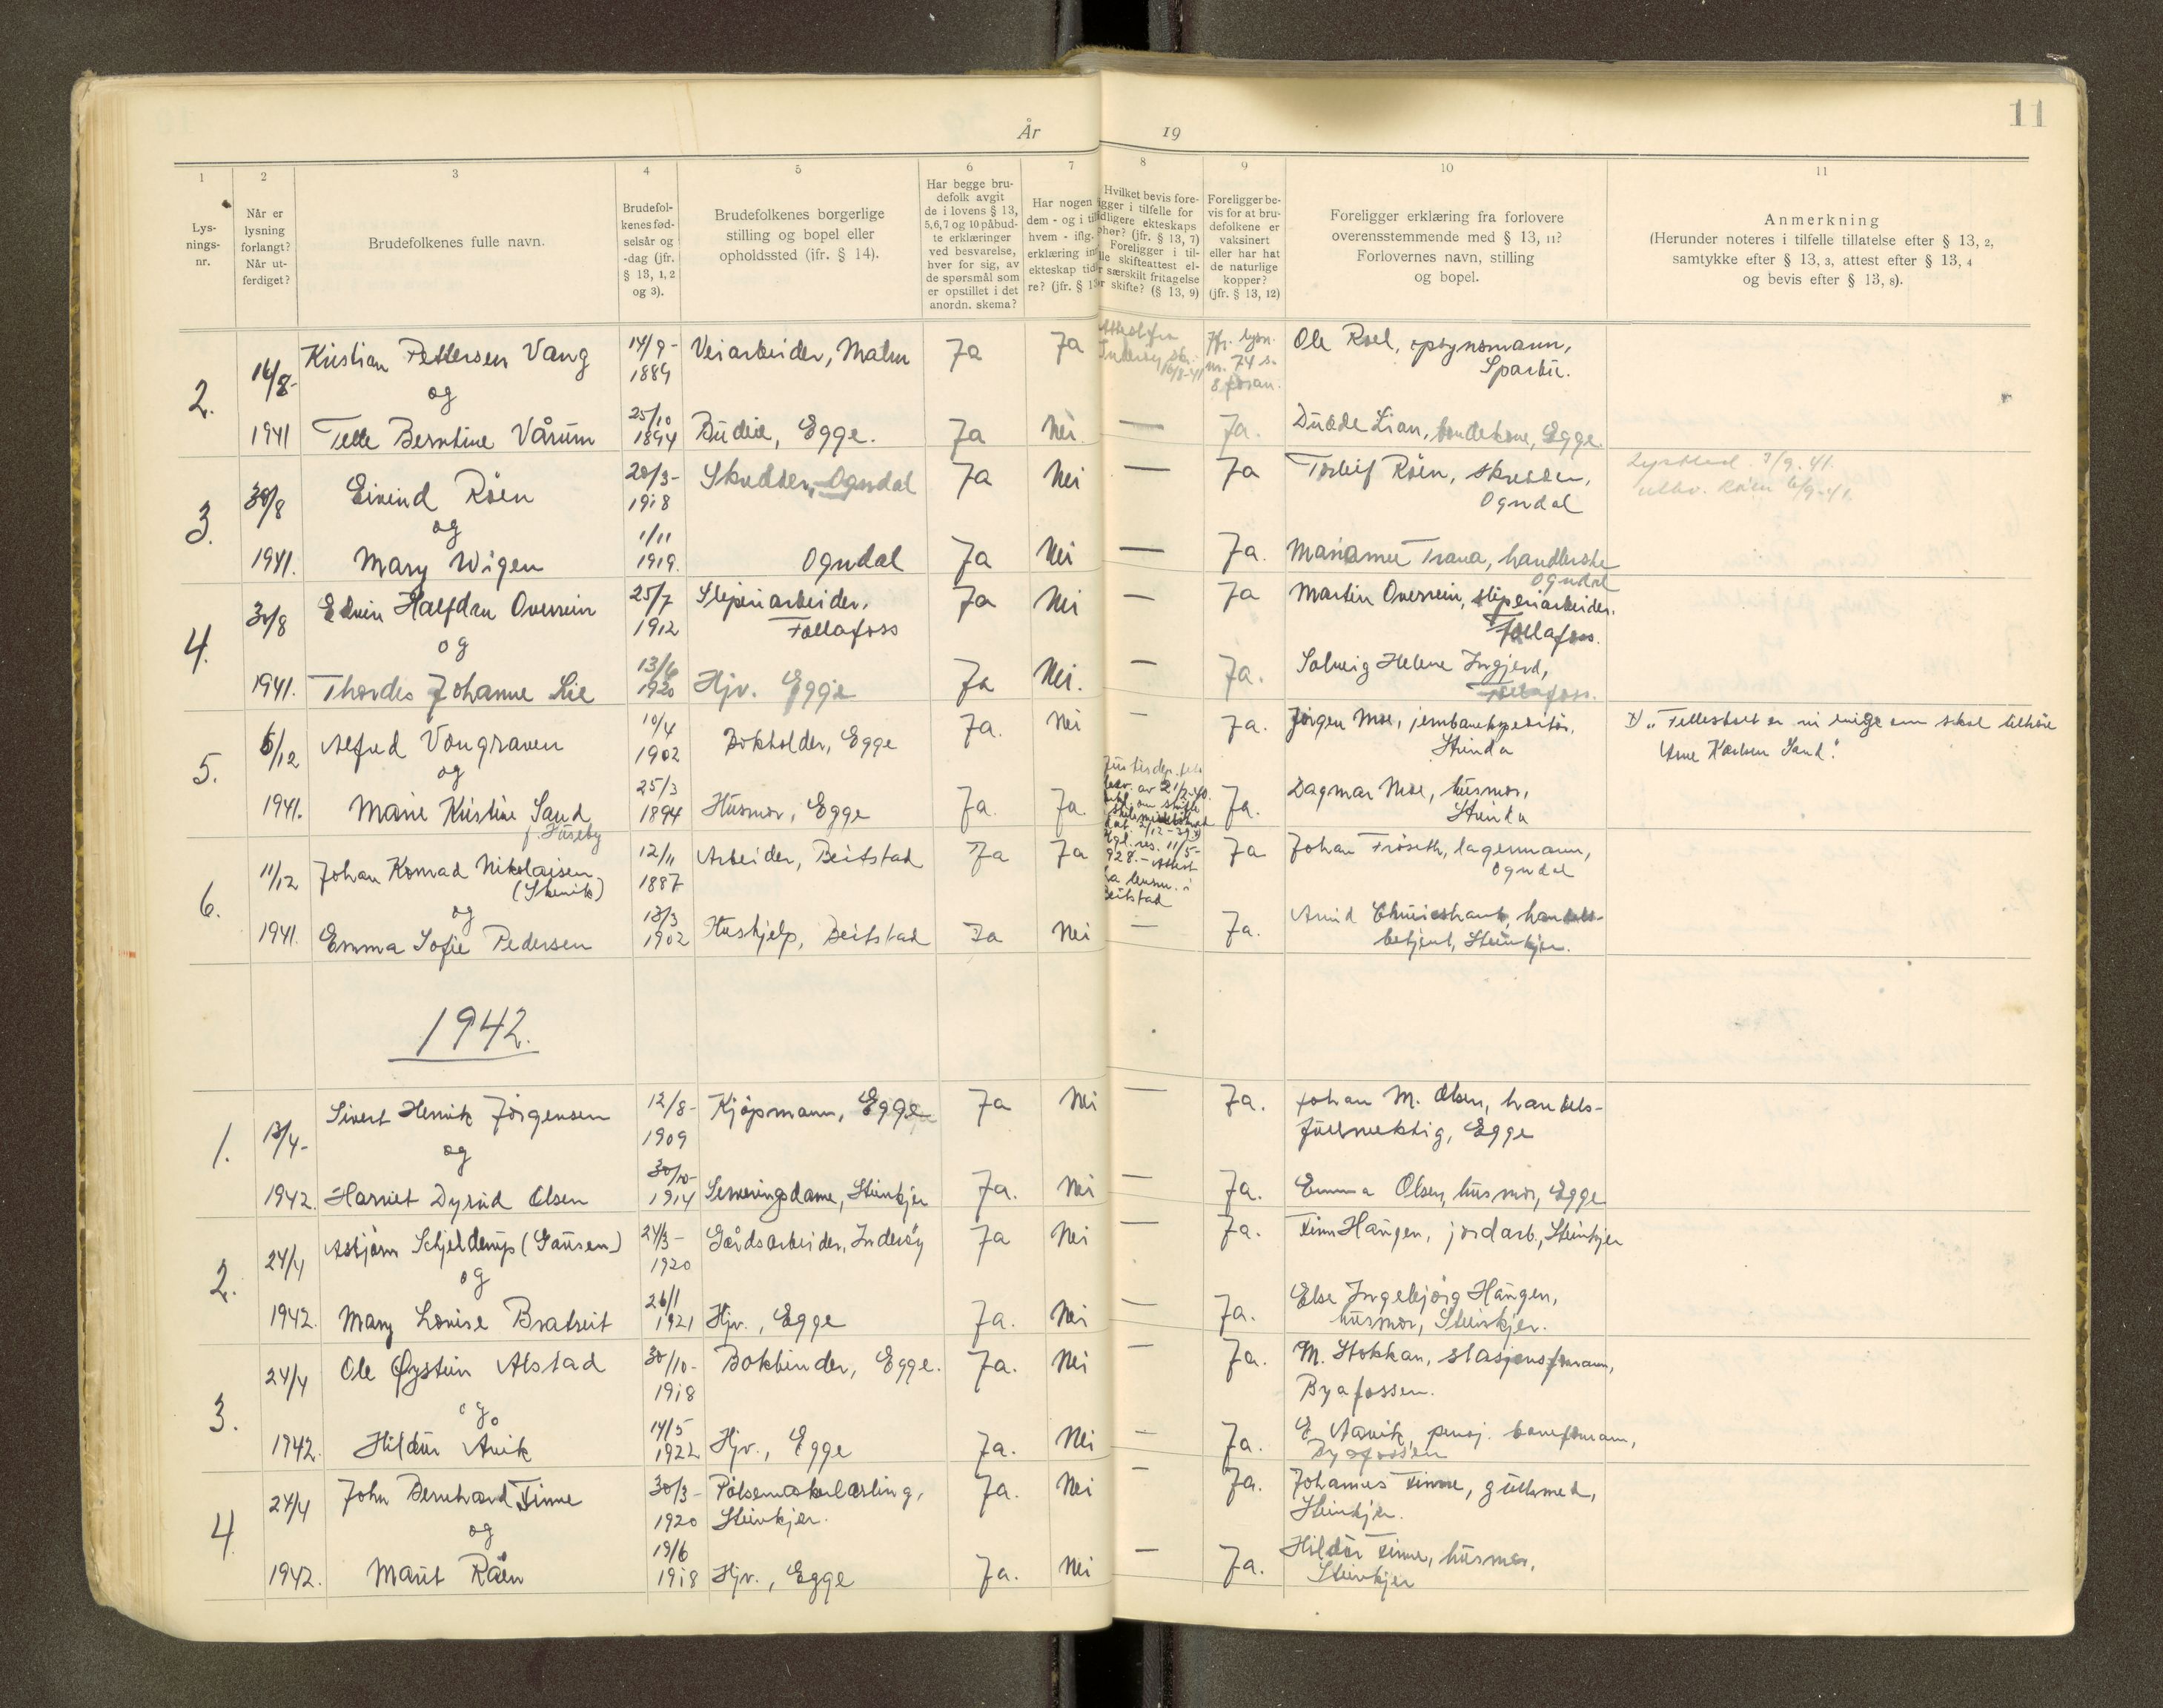 11
År 19
1 2 3 4 5 6 7 8 9 10 11
Lys-
nings-
nr.
Når er
lysning
forlangt?
Når ut-
ferdiget?
Brudefolkenes fulle navn.
Brudefol-
kenes fød-
selsår og
-dag (jfr.
§ 13, 1, 2
og 3).
Brudefolkenes borgerlige
stilling og bopel eller
opholdssted (jfr. § 14).
Har begge bru-
defolk avgit
de i lovens § 13,
5,6,7 og 10 påbud-
te erklæringer
ved besvarelse,
hver for sig, av
de spørsmål som
er opstillet i det
anordn. skema?
Har nogen
dem - og i til
hvem - iflg.
erklæring in
ekteskap tid
re? (jfr. § 1
Hvilket bevis fore-
igger i tilfelle for
dligere ekteskaps
phør? (jfr. § 13, 7)
Foreligger i til-
lle skifteattest el-
r særskilt fritagelse
r skifte? (§ 13, 9)
Foreligger be-
vis for at bru-
defolkene er
vaksinert
eller har hat
de naturlige
kopper?
(jfr. § 13, 12)
Foreligger erklæring fra forlovere
overensstemmende med § 13, 11?
Forlovernes navn, stilling
og bopel.
Anmerkning
(Herunder noteres i tilfelle tillatelse efter § 13, 2,
samtykke efter § 13, 3, attest efter § 13, 4
og bevis efter § 13, 8).
2. 14/8- 1941
Kristian Pettersen Vang 14/9- 1889 Veiarbeider, Malm Ja Ja
nr. 74 s.
8 foran.
Ole Roel, opsynsmann,
Sparbu.
og
Berntine Vårum 25/10 1894 Budeie, Egge. Ja Nei. — Ja.
Lian, Egge.
3. 30/8 1941.
Eivind Råen 20/3- 1918 Ogndal Ja Nei — Ja
Torleif Råen,
Ogndal
3/9.41.
og
Mary Wigen 1/11 1919. Ogndal Ja Nei — Ja.
Trana,
Ogndal
4. 30/8 1941.
Edvin Halfdan Overrein 25/7 1912 Sliperiarbeider,
Follafoss
Ja Nei — Ja
Martin Overrein, sliperiarbeider.
Follafoss.
og
Thordis Johanne Lie 13/6 1920 Hjv. Egge Ja Nei. — Ja.
Solveig Helene
Follafoss.
5. 6/12 1941.
Alfred Vongraven 10/4 1902 Bokholder, Egge Ja. Nei — Ja.
Jørgen Moe, jernbaneekspeditør,
Strinda
"Fellesboet er vi enige om skal tilhøre
Arne Karlsen Sand."
og
Marie Kristine Sand
f. Huseby
25/3 1894 Husmor, Egge Ja. Ja. Ja.
Dagmar Moe, husmor,
Strinda
6. 11/12 1941.
Johan Konrad Nikolaisen 12/11 1887 Arbeider, Beitstad Ja Ja
Kgl. res. 11/5-
928. - Attest
fra lensm. i
Beitstad
Ja
Johan Frøseth, lagermann,
Ogndal
og
Emma Sofie Pedersen 13/3 1902 Hushjelp, Beitstad Ja Nei — Ja.
Arvid handels-
betjent, Steinkjer.
1942.
1. 13/4- 1942.
Sivert Henrik Jørgensen 12/8- 1909 Kjøpmann, Egge Ja Nei — Ja.
Johan M. Olsen, handels-
fullmektig, Egge
og
Harriet Dyrid Olsen 30/10- 1914 Serveringsdame, Steinkjer Ja. Nei — Ja.
Emma Olsen, husmor, Egge
2. 24/4 1942.
Asbjørn Schjelderup 24/3- 1920 Gårdsarbeider, Inderøy Ja Nei — Ja.
Finn Haugen, jordarb., Steinkjer
og
Mary Lovise Bratreit 26/1 1921 Hjv., Egge Ja. Nei — Ja.
Else Ingebjørg Haugen,
husmor, Steinkjer.
3. 24/4 1942.
Ole Øystein Alstad 30/10- 1918 Bokbinder, Egge. Ja. Nei — Ja.
M. Stokkan, stasjonsformann,
Byafossen.
og
Hildur Aavik 14/5 1922 Hjv., Egge Ja. Nei — Ja.
E. Aavik, pensj. baneformann,
Byafossen
4. 24/4 1942.
John Bernhard Finne 30/3- 1920 Pølsemakerlærling,
Steinkjer.
Ja. Nei — Ja.
Johannes Finne, gullsmed,
Steinkjer.
og
Marit Råen 19/6 1918 Hjv., Egge Ja. Nei — Ja.
Hildur Finne, husmor,
Steinkjer